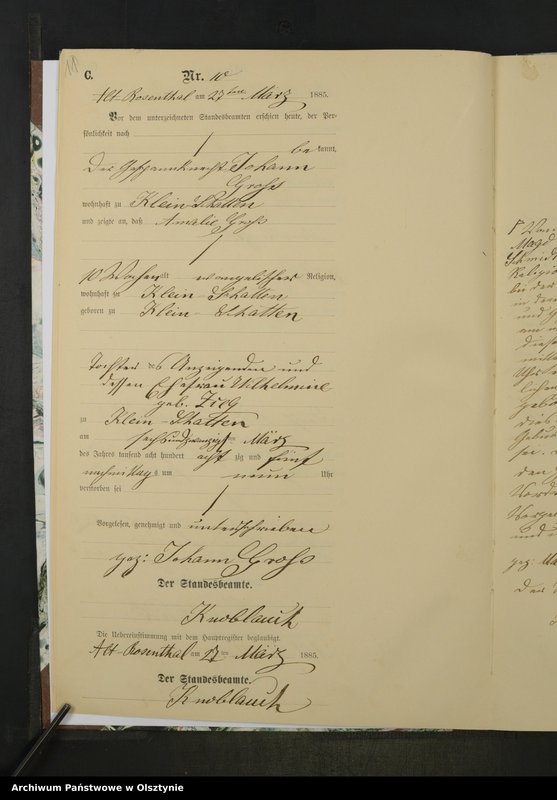 C. Nr. 10
Alt Rosenthal am 27ten März 1885.
Vor dem unterzeichneten Standesbeamten erschien heute, der Per-
sönlichkeit nach
be kannt,
Der Johann
Gross
wohnhaft zu Klein Schatten
und zeigte an, daß Amalie Gross
10 Wochen alt evangelischer Religion,
wohnhaft zu Klein Schatten
geboren zu Klein-Schatten
Tochter des Anzeigenden und
dessen Ehefrau Wilhelmine
geb.
zu Klein-Schatten
am sechsundzwanzigsten März
des Jahres tausend acht hundert acht zig und fünf
nachmittags um neun Uhr
verstorben sei
Vorgelesen, genehmigt und unterschrieben
gez: Johann Gross
Der Standesbeamte.
Knoblauch
Die Uebereinstimmung mit dem Hauptregister beglaubigt.
Alt Rosenthal am 27ten März 1885.
Der Standesbeamte.
Knoblauch
Archiwum Państwowe w Olsztynie